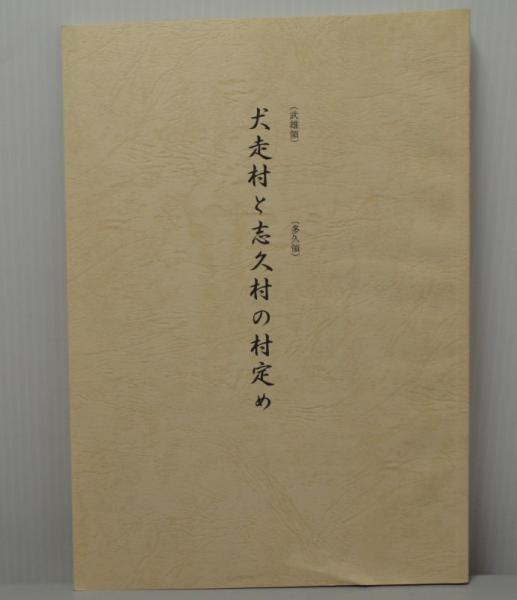 （武雄領）
（多久領）
犬走村と志久村の村定め